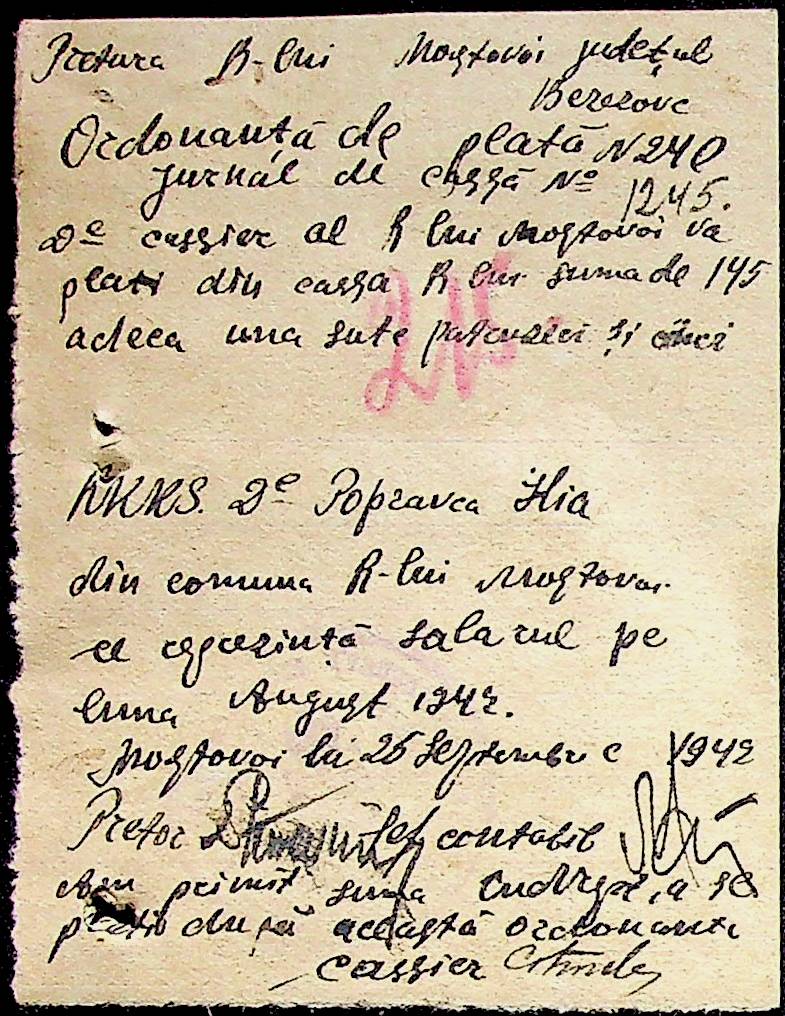 Pretura R-lui Mostovoi județul
Berezovc
Ordonanță de plată N 240
jurnal de cassă Nº 1245.
Dº cassier al R lui Mostovoi va
plati din cassa R lui suma de 145
adeca una sute patruzeci și cinci
215
RKKS. Dº Popravca Ilia
din comuna R-lui Mostovoi
ce reprezintă salarul pe
luna August 1942.
Mostovoi la 25 Septembrie 1942
Pretor Șef contabil
Am primit suma a se
plati după această ordonanta
cassier